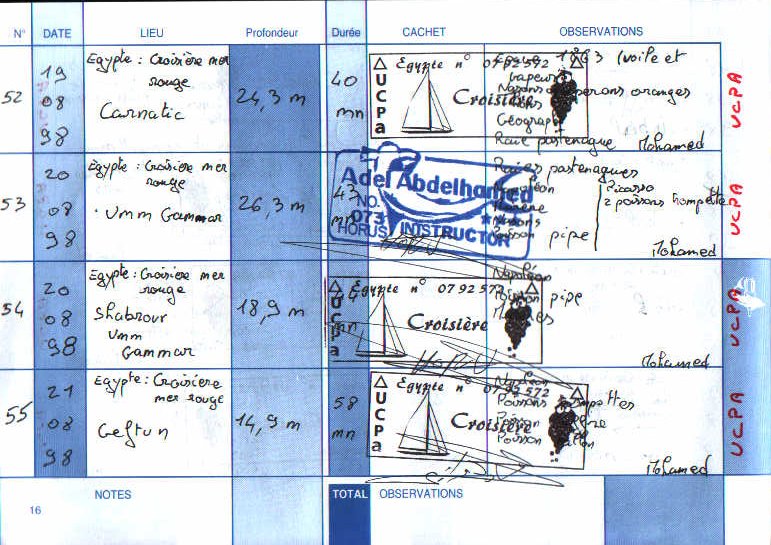 N° DATE LIEU Profondeur Durée CACHET OBSERVATIONS
52
19
08
98
Egypte : Croisière mer
rouge
Carnatic
24,3 m
40
mn
Egypte n° 07 92 572
UCPa
Croisière
1863 (voile et
vapeur)
éperons oranges
Géographe
Raie pastenague
Mohamed
UCPA
53
20
08
98
Egypte : Croisière mer
rouge
Umm Gammar
26,3 m
43
mn
Adel Abdelhamed
NO.
073
HORUS INSTRUCTOR
Raies pastenagues
Napoléon
Murène
Poisson pipe
Picasso
2 poissons trompette
Mohamed
UCPA
54
20
08
98
Egypte : Croisière mer
rouge
Shabrour
Umm
Gammar
18,9 m
mn
Egypte n° 07 92 572
UCPa
Croisière
Napoléon
Poisson pipe
Mohamed
UCPA
55
21
08
98
Egypte : Croisière
mer rouge
Geftun
14,9 m
58
mn
Egypte n° 07 92 572
UCPa
Croisière
Napoléon
Poissons trompettes
Poisson
Poisson
Mohamed
UCPA
NOTES TOTAL OBSERVATIONS
16